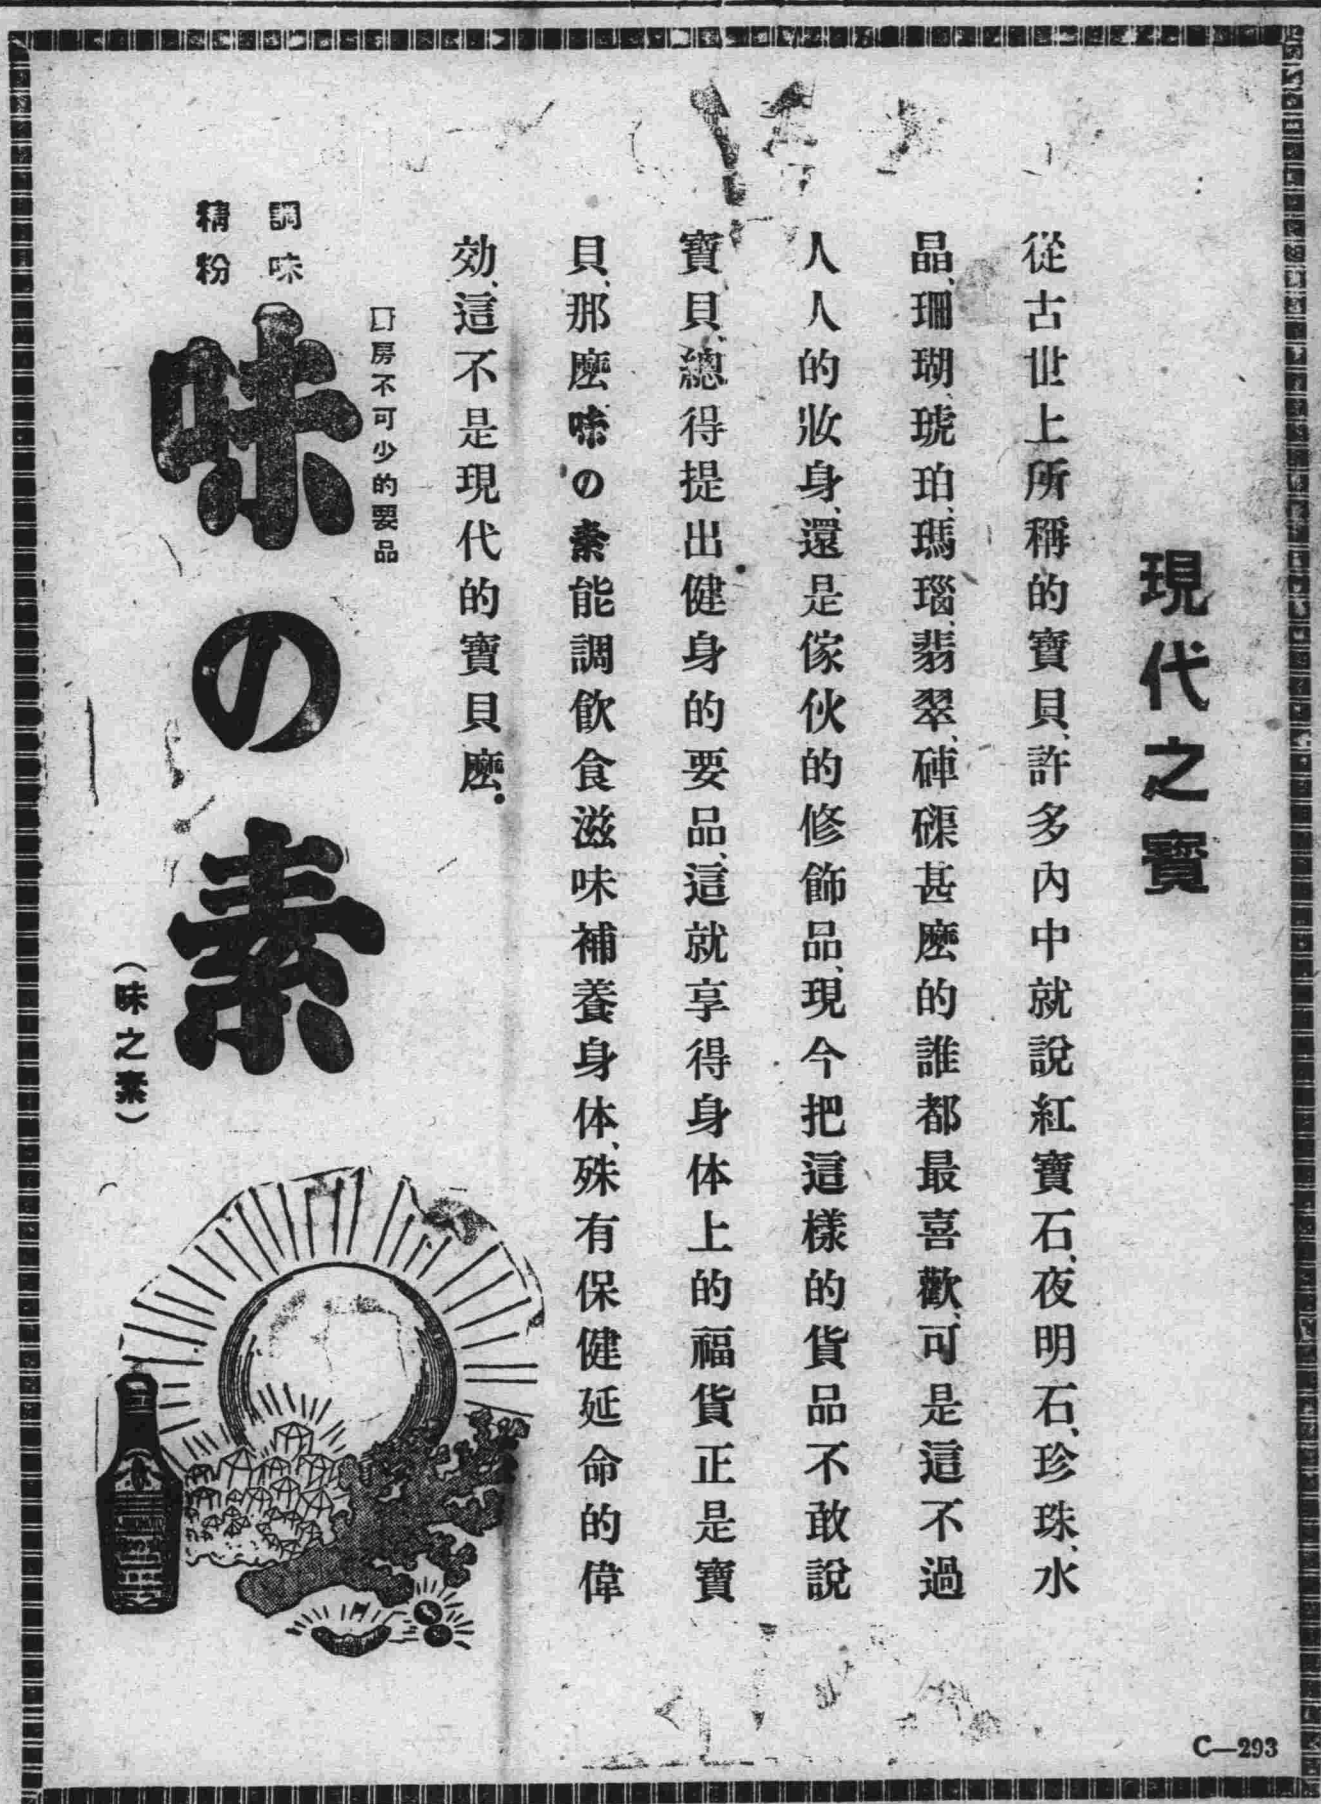 現代之寶
從古世上所稱的寶貝、許多內中就說紅寶石、夜明石、珍珠、水
品、珊瑚、琥珀、瑪瑙、翡翠、硨磲甚麼的誰都最喜歡、可是這不過
人人的妝身、還是傢伙的修飾品、現今把這樣的貨品不敢說
寶貝、總得提出健身的要品、這就享得身体上的福貨正是寶
貝、那麼味の素能調飲食滋味補養身体、殊有保健延命的偉
効、這不是現代的寶貝麼。
房不可少的要品
調味
精粉
味の素
(味之素)
C—293